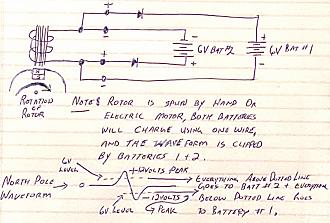 +
-
6V BAT #2
6V BAT #1
+
-
-
+
+
-
N S
ROTATION
OF
ROTOR
NOTE: ROTOR IS SPUN BY HAND OR
ELECTRIC MOTOR, BOTH BATTERIES
WILL CHARGE USING ONE WIRE,
AND THE WAVEFORM IS CLIPED
BY BATTERIES 1 + 2.
6V
LEVEL
+12VOLTS PEAK
NORTH POLE
WAVEFORM
EVERYTHING ABOVE DOTTED LINE
GOES TO BATT #2 + EVERYTHING
-12VOLTS
BELOW DOTTED LINE GOES
6V LEVEL
PEAK
TO BATTERY #1,